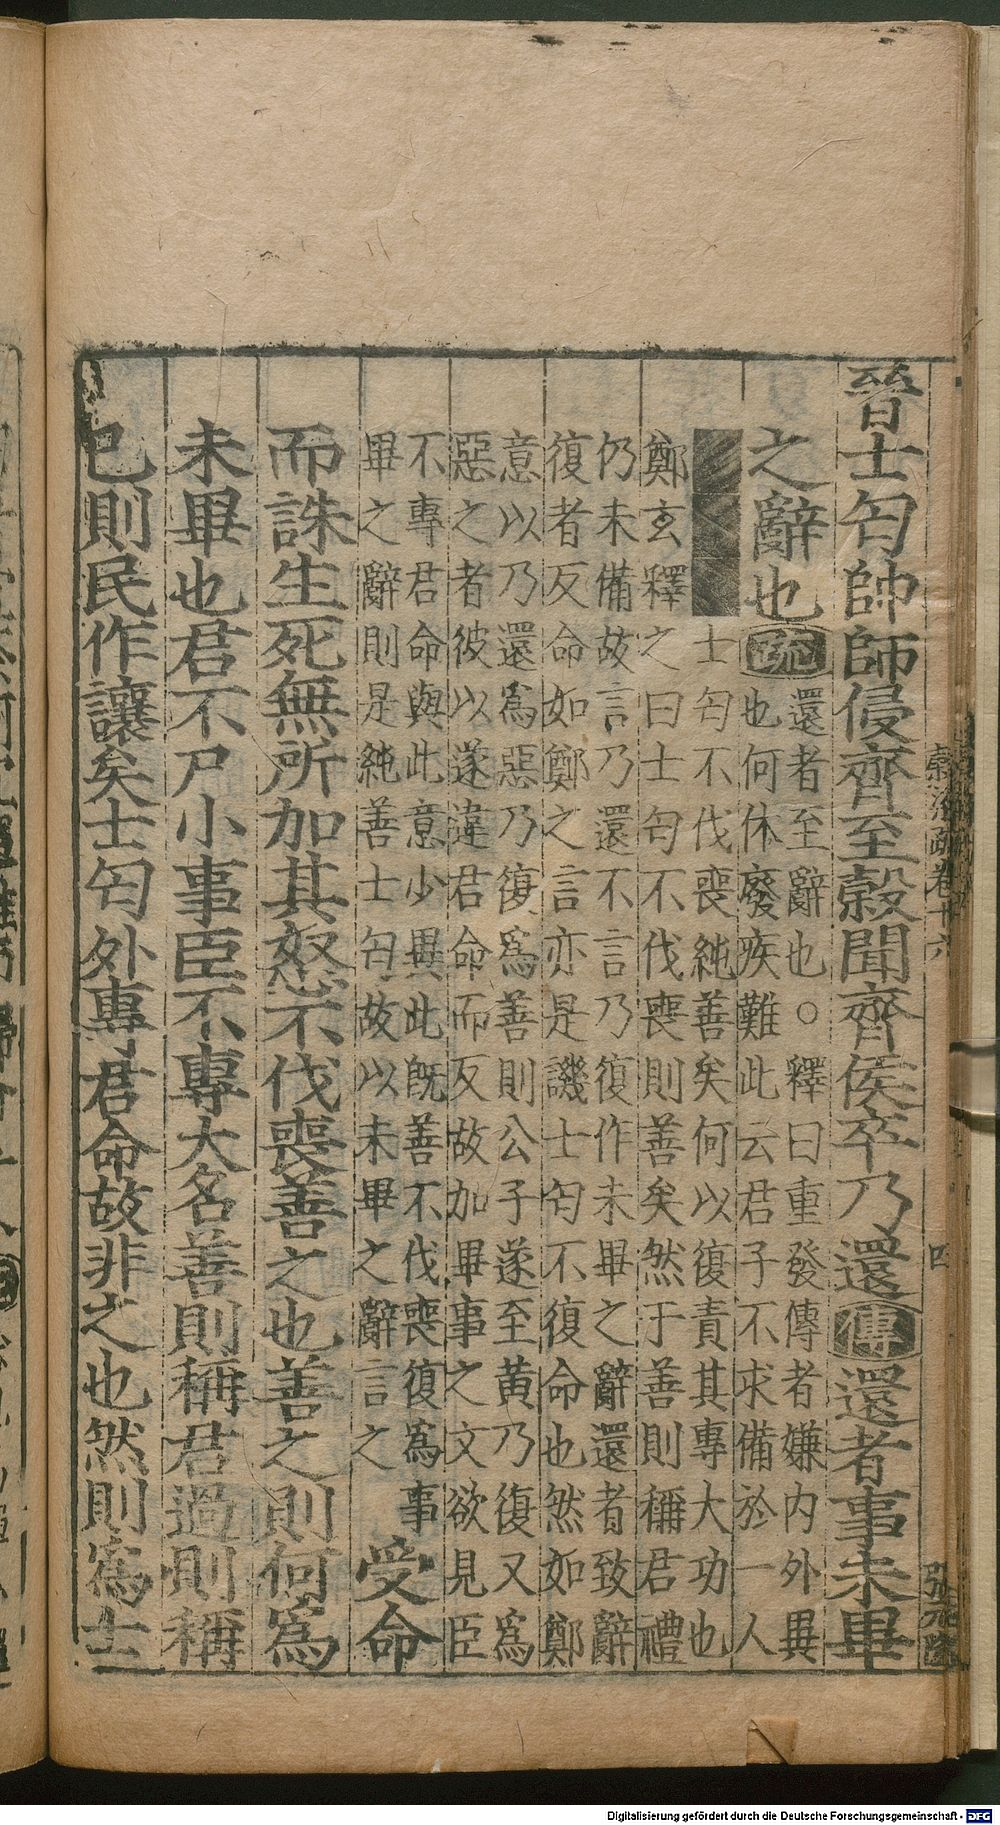 晉士匄帥師侵齊至穀聞齊侯卒乃還傳還者事未畢
之辭也疏
還者至辭也○釋曰重發傳者嫌內外異
也何休廢疾難此云君子不求備於一人
士匄不伐喪純善矣何以復責其專大功也
鄭玄釋之曰士匄不伐喪則善矣然于善則稱君禮
仍未備故言乃還不言乃復作未畢之辭還者致辭
復者反命如鄭之言亦是譏士匄不復命也然如鄭
意以乃還為惡乃復為善則公子遂至黃乃復又為
惡之者彼以遂違君命而反故加畢事之文欲見臣
不專君命與此意少異此既善不伐喪復為事
畢之辭則是純善士匄故以未畢之辭言之
受命
而誅生死無所加其怒不伐喪善之也善之則何為
未畢也君不尸小事臣不專大名善則稱君過則稱
已則民作讓矣士匄外專君命故非之也然則為士
疏卷十六
四
Digitalisierung gefördert durch die Deutsche Forschungsgemeinschaft - DFG